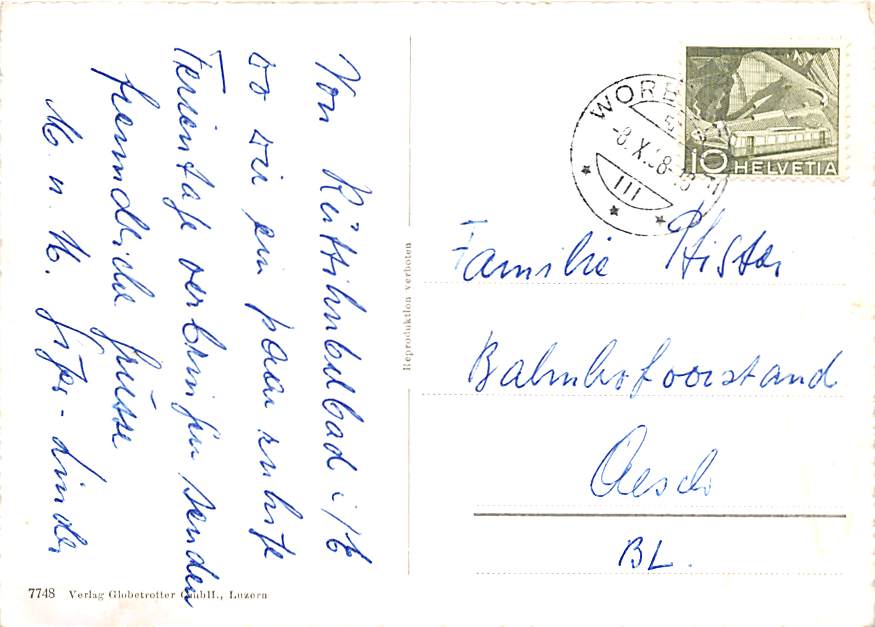 Von Rüttihubelbad i/E
wo wir ein paar ruhige
Ferientage verbringen senden
freundliche Grüsse
M. u. H.
Reproduktion verboten
WORB
-8.X.
III
10 HELVETIA
Familie Pfister
Bahnhofvorstand
Aesch
BL.
7748 Verlag Globetrotter GmbH., Luzern